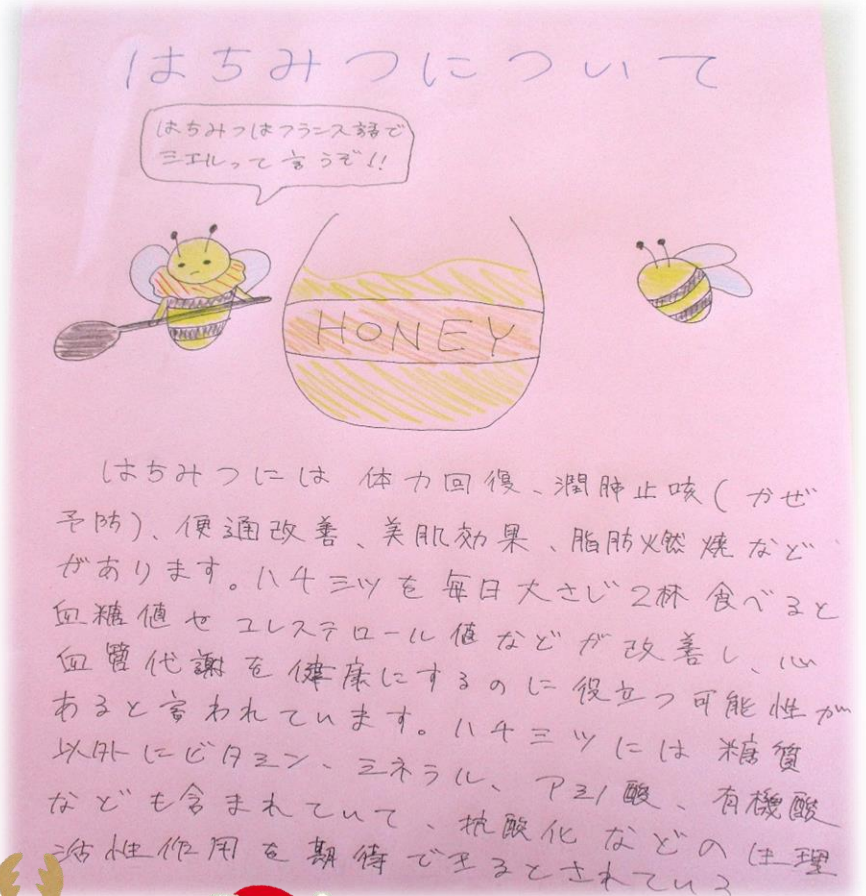 はちみつについて
はちみつはフランス語で
ミエルって言うぞ!!
HONEY
はちみつには 体力回復、潤肺止咳(かぜ
予防)、便通改善、美肌効果、脂肪燃焼など
があります。ハチミツを毎日大さじ2杯食べると
血糖値やコレステロール値などが改善し、心
血管代謝を健康にするのに役立つ可能性が
あると言われています。ハチミツには糖質
以外にビタミン、ミネラル、アミノ酸、有機酸
なども含まれていて、抗酸化などの生理
活性作用を期待できるとされている